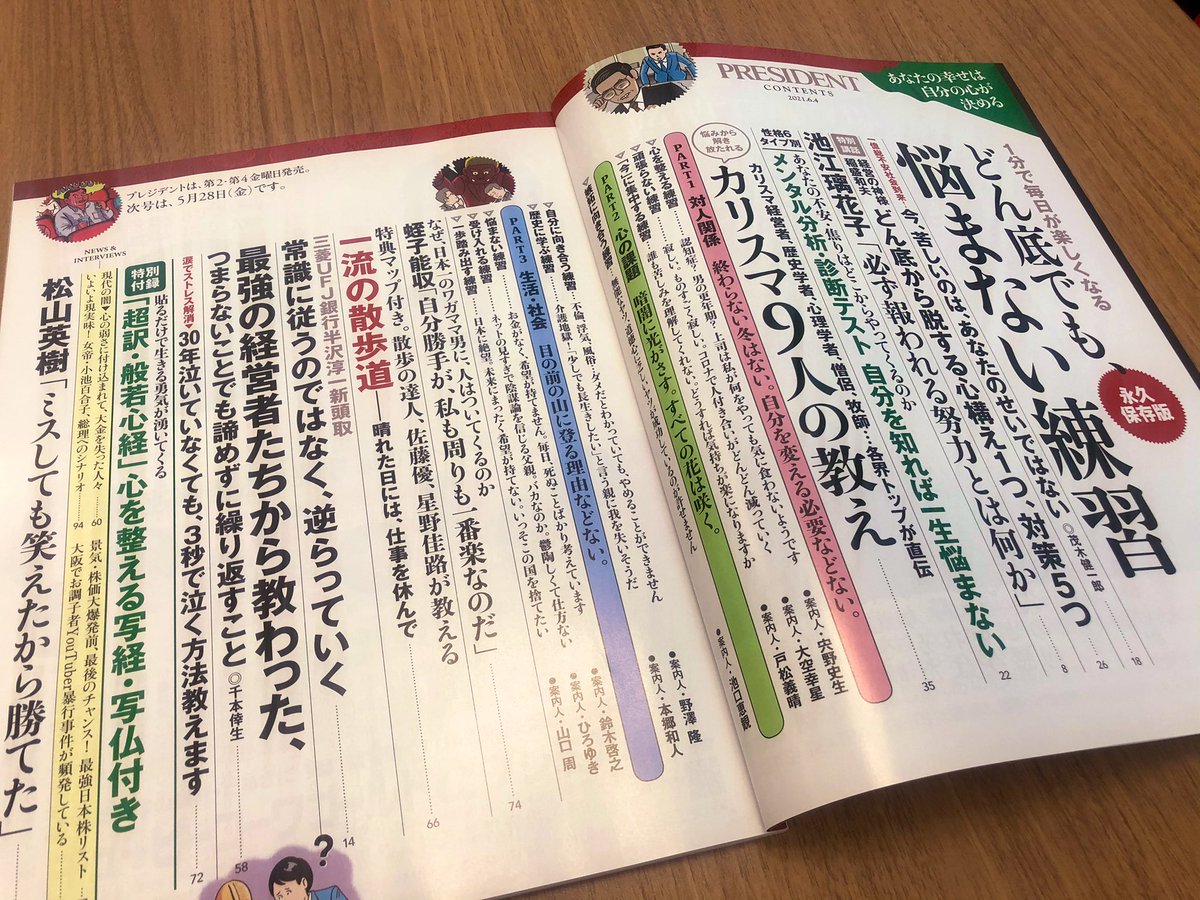 PRESIDENT
CONTENTS
2021.6.4
あなたの幸せは
自分の心が
決める
1分で毎日が楽しくなる
どん底でも、
悩まない練習
永久
保存版
18
一億総不安社会到来、今、苦しいのは、あなたのせいではない ◎茂木健一郎
26
経営の神様
稲盛和夫
どん底から脱する心構え1つ、対策5つ
8
特別
講話
池江璃花子「必ず報われる努力とは何か」
22
あなたの不安、焦りはどこからやってくるのか
性格6
タイプ別
メンタル分析・診断テスト 自分を知れば一生悩まない
カリスマ経営者、歴史学者、心理学者、僧侶、牧師…各界トップが直伝
35
悩みから
解き
放たれる
カリスマ9人の教え
PART1 対人関係 終わらない冬はない。自分を変える必要などない。
▽心を整える練習
認知症？男の更年期？上司は私が何をやっても気に食わないようです
●案内人・宍野史生
▽頑張らない練習
寂しい。ものすごく寂しい。コロナで付き合いがどんどん減っていく
●案内人・大空幸星
▽「今」に集中する練習
誰も苦しみを理解してくれない。どうすれば気持ちが楽になりますか
●案内人・戸松義晴
PART2 心の課題 暗闇に光がさす。すべての花は咲く。
●案内人・池口恵観
▽自分に向き合う練習
不倫、浮気、風俗…ダメだとわかっていても、やめることができません
●案内人・野澤 隆
▽歴史に学ぶ練習
介護地獄！「少しでも長生きしたい」と言う親に我を失いそうだ
●案内人・本郷和人
PART3 生活・社会 目の前の山に登る理由などない。
▽悩まない練習
お金がなく、希望が持てません。毎日、死ぬことばかり考えています
●案内人・鈴木啓之
▽受け入れる練習
ネットの見すぎで陰謀論を信じる父親。バカなのか。鬱陶しくて仕方ない
●案内人・ひろゆき
▽一歩踏み出す練習
日本に絶望。未来にまったく希望が持てない。いっそこの国を捨てたい
●案内人・山口 周
プレジデントは、第2・第4金曜日発売。
次号は、5月28日（金）です。
なぜ、日本一のワガママ男に、人はついてくるのか
蛭子能収「自分勝手が、私も周りも一番楽なのだ」
74
特典マップ付き。散歩の達人、佐藤優、星野佳路が教える
一流の散歩道——晴れた日には、仕事を休んで
66
三菱UFJ銀行半沢淳一新頭取
常識に従うのではなく、逆らっていく
14
最強の経営者たちから教わった、
つまらないことでも諦めずに繰り返すこと ◎千本倖生
58
涙でストレス解消♥
30年泣いていなくても、3秒で泣く方法教えます
72
貼るだけで生きる勇気が湧いてくる
特別
付録
「超訳・般若心経」心を整える写経・写仏付き
NEWS &
INTERVIEWS
現代の闇♥心の弱さに付け込まれて、大金を失った人々
60
景気・株価大爆発前、最後のチャンス！ 最強日本株リスト
いよいよ現実味！ 女帝・小池百合子、総理へのシナリオ
94
大阪でお調子者YouTuber暴行事件が頻発している
松山英樹「ミスしても笑えたから勝てた」
?